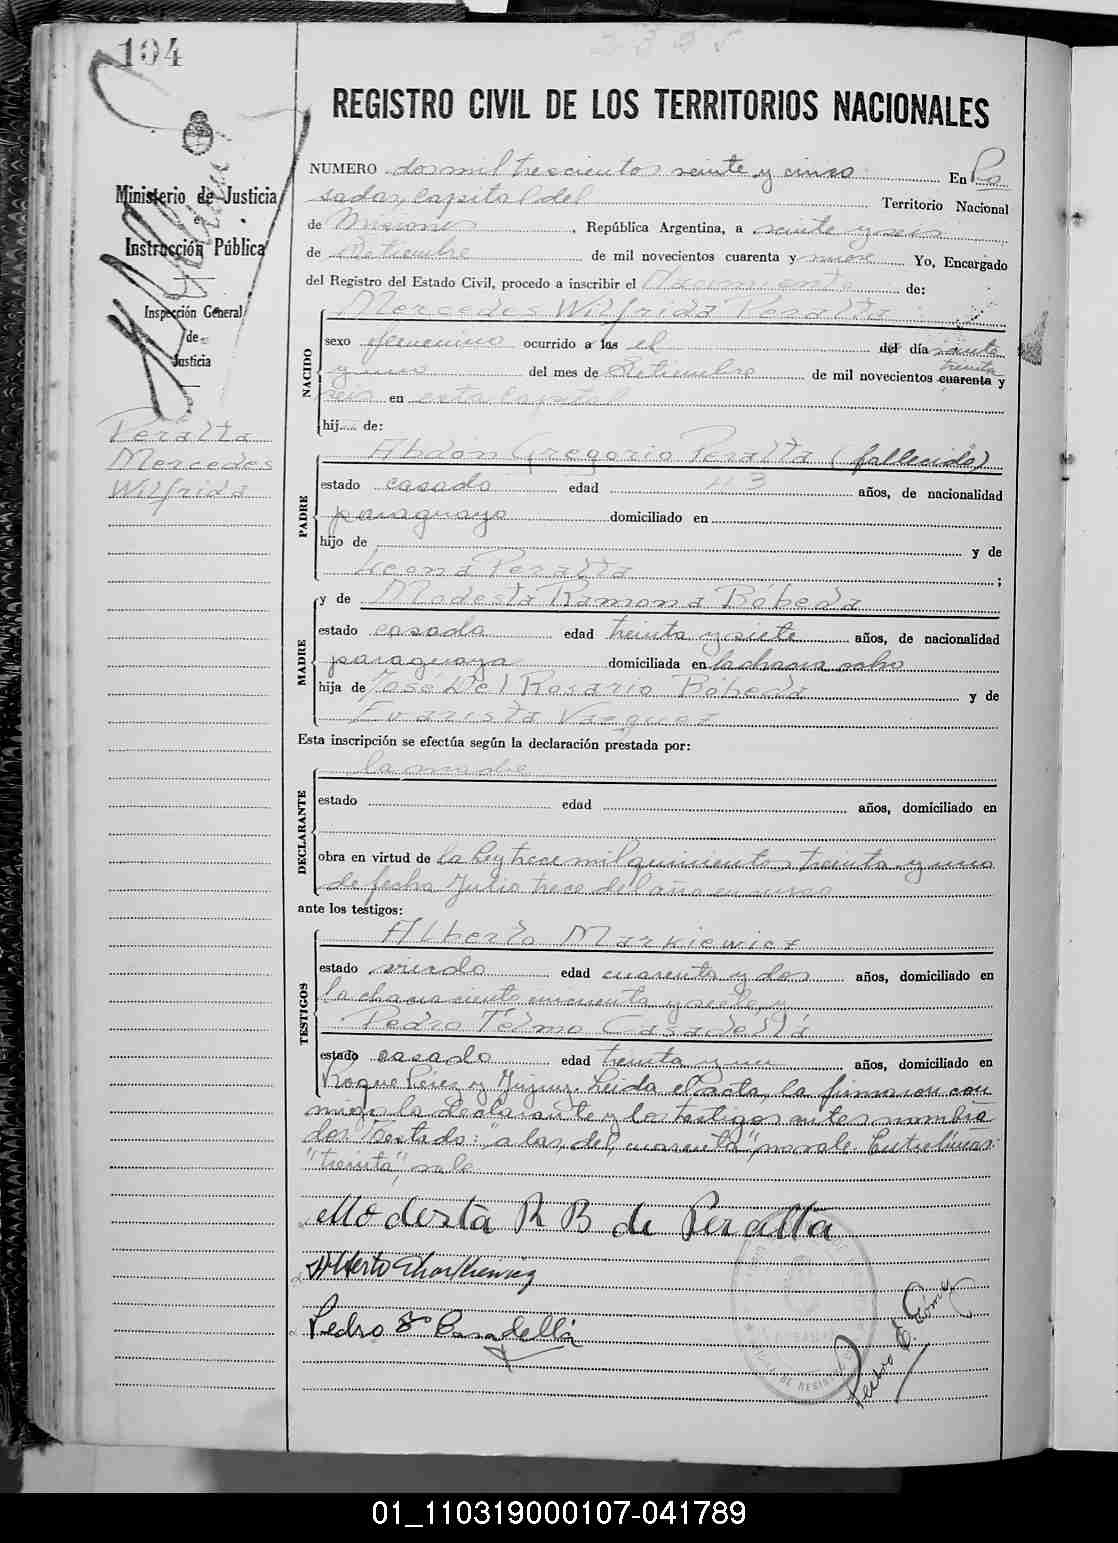 104
REGISTRO CIVIL DE LOS TERRITORIOS NACIONALES
Ministerio de Justicia
e
Instrucción Pública
Inspección General
de
Justicia
Peralta
Mercedes
Wilfrida
NUMERO dos mil trescientos veinte y cinco En Po
sadas, Capital del Territorio Nacional
de Misiones, República Argentina, a veinte y seis
de Setiembre de mil novecientos cuarenta y nueve Yo, Encargado
del Registro del Estado Civil, procedo a inscribir el Nacimiento de:
NACIDO
Mercedes Wilfrida Peralta
sexo femenino ocurrido a las el del día veinte
y uno del mes de Setiembre de mil novecientos cuarenta y treinta
seis en esta Capital
hij..... de:
PADRE
Abdón Gregorio Peralta (fallecido)
estado casado edad 43 años, de nacionalidad
paraguayo domiciliado en
hijo de y de
Leona Peralta ;
MADRE
y de Modesta Ramona Bóbeda
estado casada edad treinta y siete años, de nacionalidad
paraguaya domiciliada en la chacra ocho
hija de José Del Rosario Bóbeda y de
Evarista Vazquez
Esta inscripción se efectúa según la declaración prestada por:
DECLARANTE
la madre
estado edad años, domiciliado en
obra en virtud de la Ley trece mil quinientos treinta y uno
de fecha Julio trece del año en curso
ante los testigos:
TESTIGOS
Alberto Markiewicz
estado viudo edad cuarenta y dos años, domiciliado en
la chacra ciento cincuenta y seis, y
Pedro Telmo Casadellá
estado casado edad treinta y un años, domiciliado en
Roque Pérez y Jujuy. Leida el acta, la firmaron con
migo la declarante y los testigos antes nombra
dos. Testado: "a las, del, cuarenta", no vale. Entrelíneas:
"treinta", vale
Modesta R B de Peralta
Alberto Markiewicz
Pedro T. Casadellá
Pedro E. Gomez
01_110319000107-041789